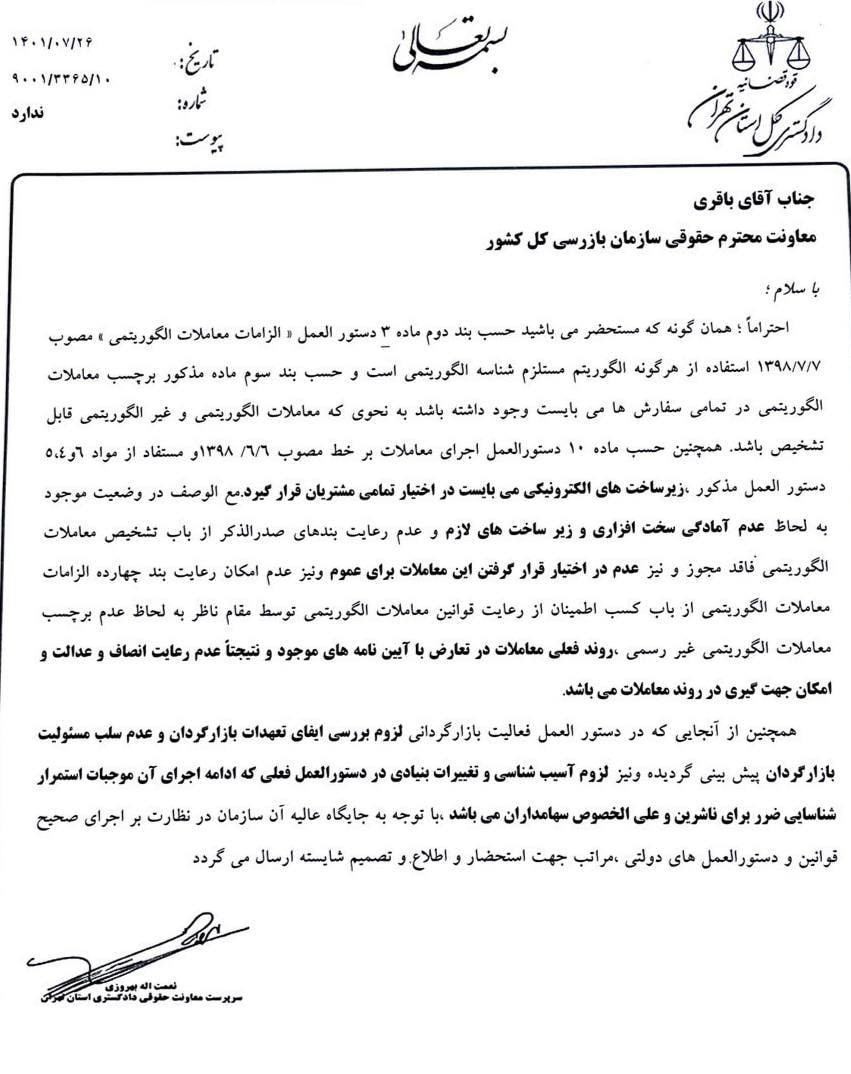 بسمه تعالی
قوه قضائیه
دادگستری کل استان تهران
تاریخ: ۱۴۰۱/۰۷/۲۶
شماره: ۹۰۰۱/۳۳۶۵/۱۰
پیوست: ندارد
جناب آقای باقری
معاونت محترم حقوقی سازمان بازرسی کل کشور
با سلام ؛
احتراماً ؛ همان گونه که مستحضر می باشید حسب بند دوم ماده ۳ دستور العمل « الزامات معاملات الگوریتمی » مصوب
۱۳۹۸/۷/۷ استفاده از هرگونه الگوریتم مستلزم شناسه الگوریتمی است و حسب بند سوم ماده مذکور برچسب معاملات
الگوریتمی در تمامی سفارش ها می بایست وجود داشته باشد به نحوی که معاملات الگوریتمی و غیر الگوریتمی قابل
تشخیص باشد. همچنین حسب ماده ۱۰ دستورالعمل اجرای معاملات بر خط مصوب ۱۳۹۸/۶/۶ و مستفاد از مواد ۶و۵،۴
دستور العمل مذکور ،زیرساخت های الکترونیکی می بایست در اختیار تمامی مشتریان قرار گیرد.مع الوصف در وضعیت موجود
به لحاظ عدم آمادگی سخت افزاری و زیر ساخت های لازم و عدم رعایت بندهای صدرالذکر از باب تشخیص معاملات
الگوریتمی فاقد مجوز و نیز عدم در اختیار قرار گرفتن این معاملات برای عموم ونیز عدم امکان رعایت بند چهارده الزامات
معاملات الگوریتمی از باب کسب اطمینان از رعایت قوانین معاملات الگوریتمی توسط مقام ناظر به لحاظ عدم برچسب
معاملات الگوریتمی غیر رسمی ،روند فعلی معاملات در تعارض با آیین نامه های موجود و نتیجتاً عدم رعایت انصاف و عدالت و
امکان جهت گیری در روند معاملات می باشد.
همچنین از آنجایی که در دستور العمل فعالیت بازارگردانی لزوم بررسی ایفای تعهدات بازارگردان و عدم سلب مسئولیت
بازارگردان پیش بینی گردیده ونیز لزوم آسیب شناسی و تغییرات بنیادی در دستورالعمل فعلی که ادامه اجرای آن موجبات استمرار
شناسایی ضرر برای ناشرین و علی الخصوص سهامداران می باشد ،با توجه به جایگاه عالیه آن سازمان در نظارت بر اجرای صحیح
قوانین و دستورالعمل های دولتی ،مراتب جهت استحضار و اطلاع و تصمیم شایسته ارسال می گردد
نعمت اله بهروزی
سرپرست معاونت حقوقی دادگستری استان تهران